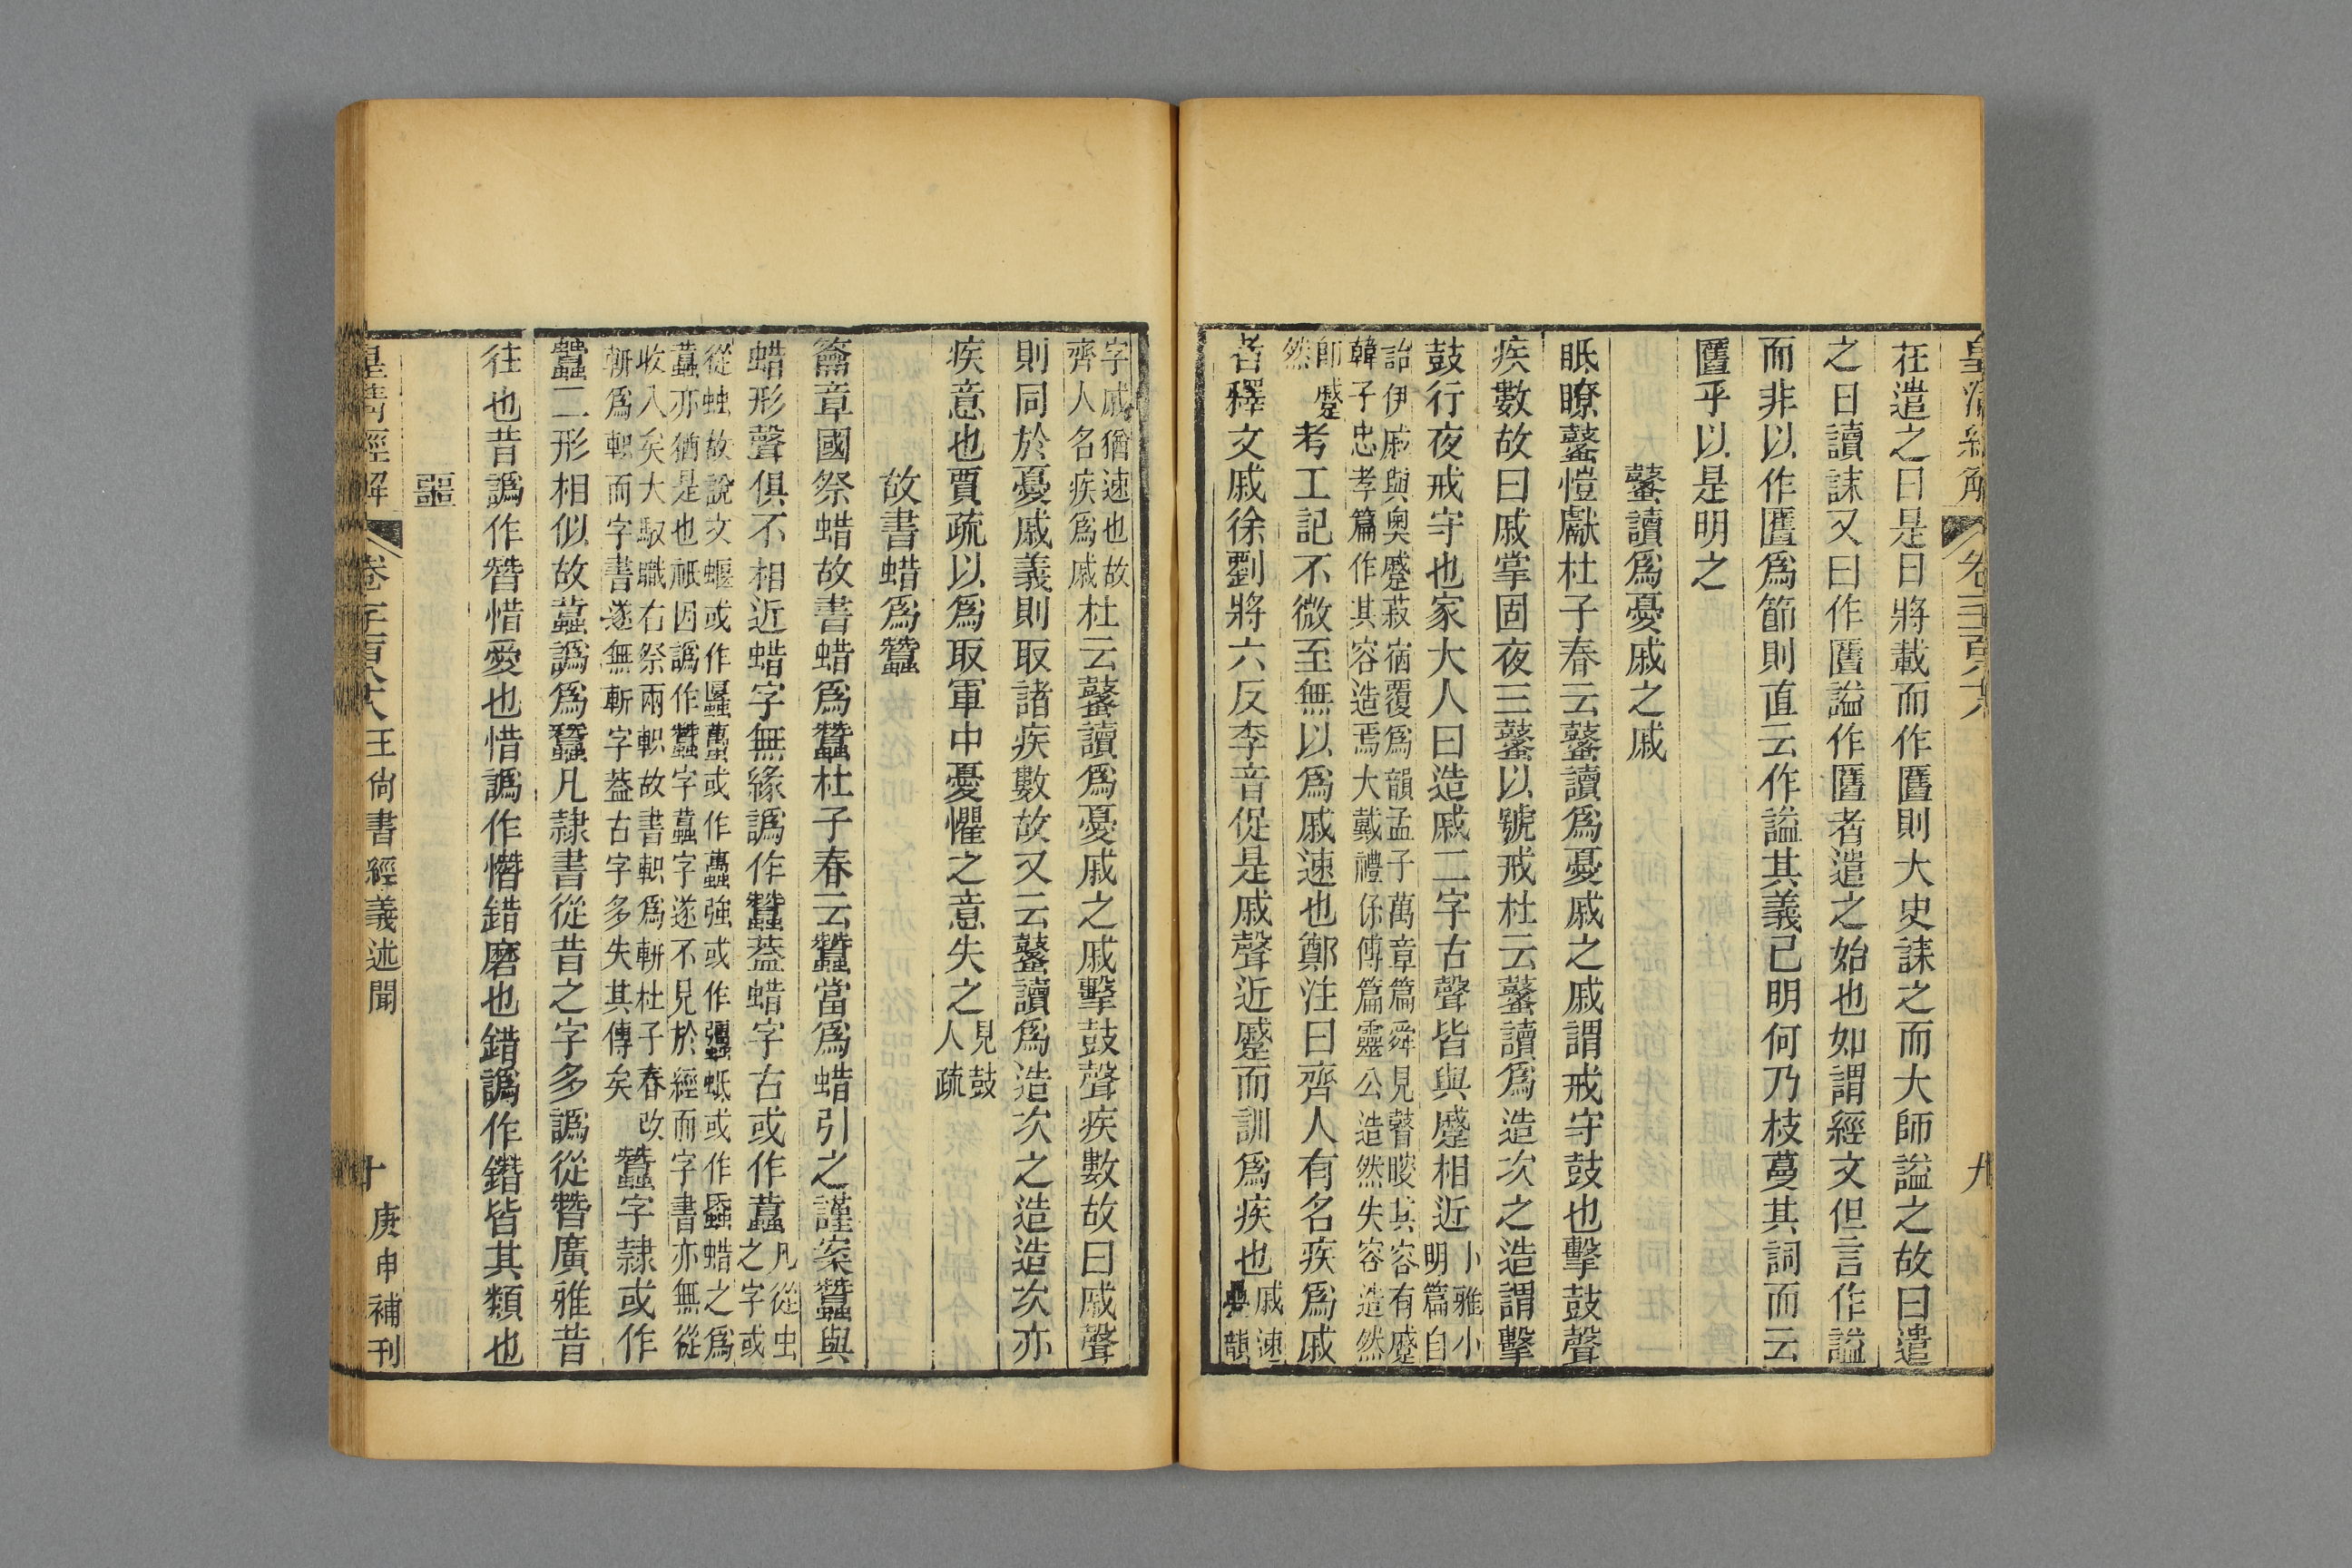 皇清經解
九
在遣之日是日將載而作匶則大史誄之而大師諡之故曰遣
之日讀誄又曰作匶諡作匶者遣之始也如謂經文但言作諡
而非以作匶爲節則直云作諡其義已明何乃枝蔓其詞而云
匶乎以是明之
鼜讀爲憂戚之戚
眡瞭鼜愷獻杜子春云鼜讀爲憂戚之戚謂戒守鼓也擊鼓聲
疾數故曰戚掌固夜三鼜以號戒杜云鼜讀爲造次之造謂擊
鼓行夜戒守也家大人曰造戚二字古聲皆與蹙相近小雅小明篇自
詒伊戚與奧蹙菽宿覆爲韻孟子萬章篇舜見瞽瞍其容有蹙
韓子忠孝篇作其容造焉大戴禮保傅篇靈公造然失容造然
卽蹙然考工記不微至無以爲戚速也鄭注曰齊人有名疾爲戚
者釋文戚徐劉將六反李音促是戚聲近蹙而訓爲疾也戚速疊韻
字戚猶速也故齊人名疾爲戚杜云鼜讀爲憂戚之戚擊鼓聲疾數故曰戚聲
則同於憂戚義則取諸疾數故又云鼜讀爲造次之造造次亦
疾意也賈疏以爲取軍中憂懼之意失之見鼓人疏
故書蜡爲蠶
籥章國祭蜡故書蜡爲蠶杜子春云蠶當爲蜡引之謹案蠶與
蜡形聲俱不相近蜡字無緣譌作蠶蓋蜡字古或作⿱昔䖵凡從虫之字或
從䖵故說文蝘或作⿱匽䖵蠆或作⿱萬䖵強或作⿱彊䖵蚳或作⿱氐䖵蜡之爲
⿱昔䖵亦猶是也祇因譌作蠶字⿱昔䖵字遂不見於經而字書亦無從
收入矣大馭職右祭兩軹故書軹爲軿杜子春改
軿爲軹而字書遂無斬字蓋古字多失其傳矣蠶字隷或作
蠶二形相似故⿱昔䖵譌爲蠶凡隷書從昔之字多譌從朁廣雅昔
往也昔譌作朁惜愛也惜譌作憯錯磨也錯譌作鐕皆其類也
噩
皇清經解
王尚書經義述聞
十
庚申補刊